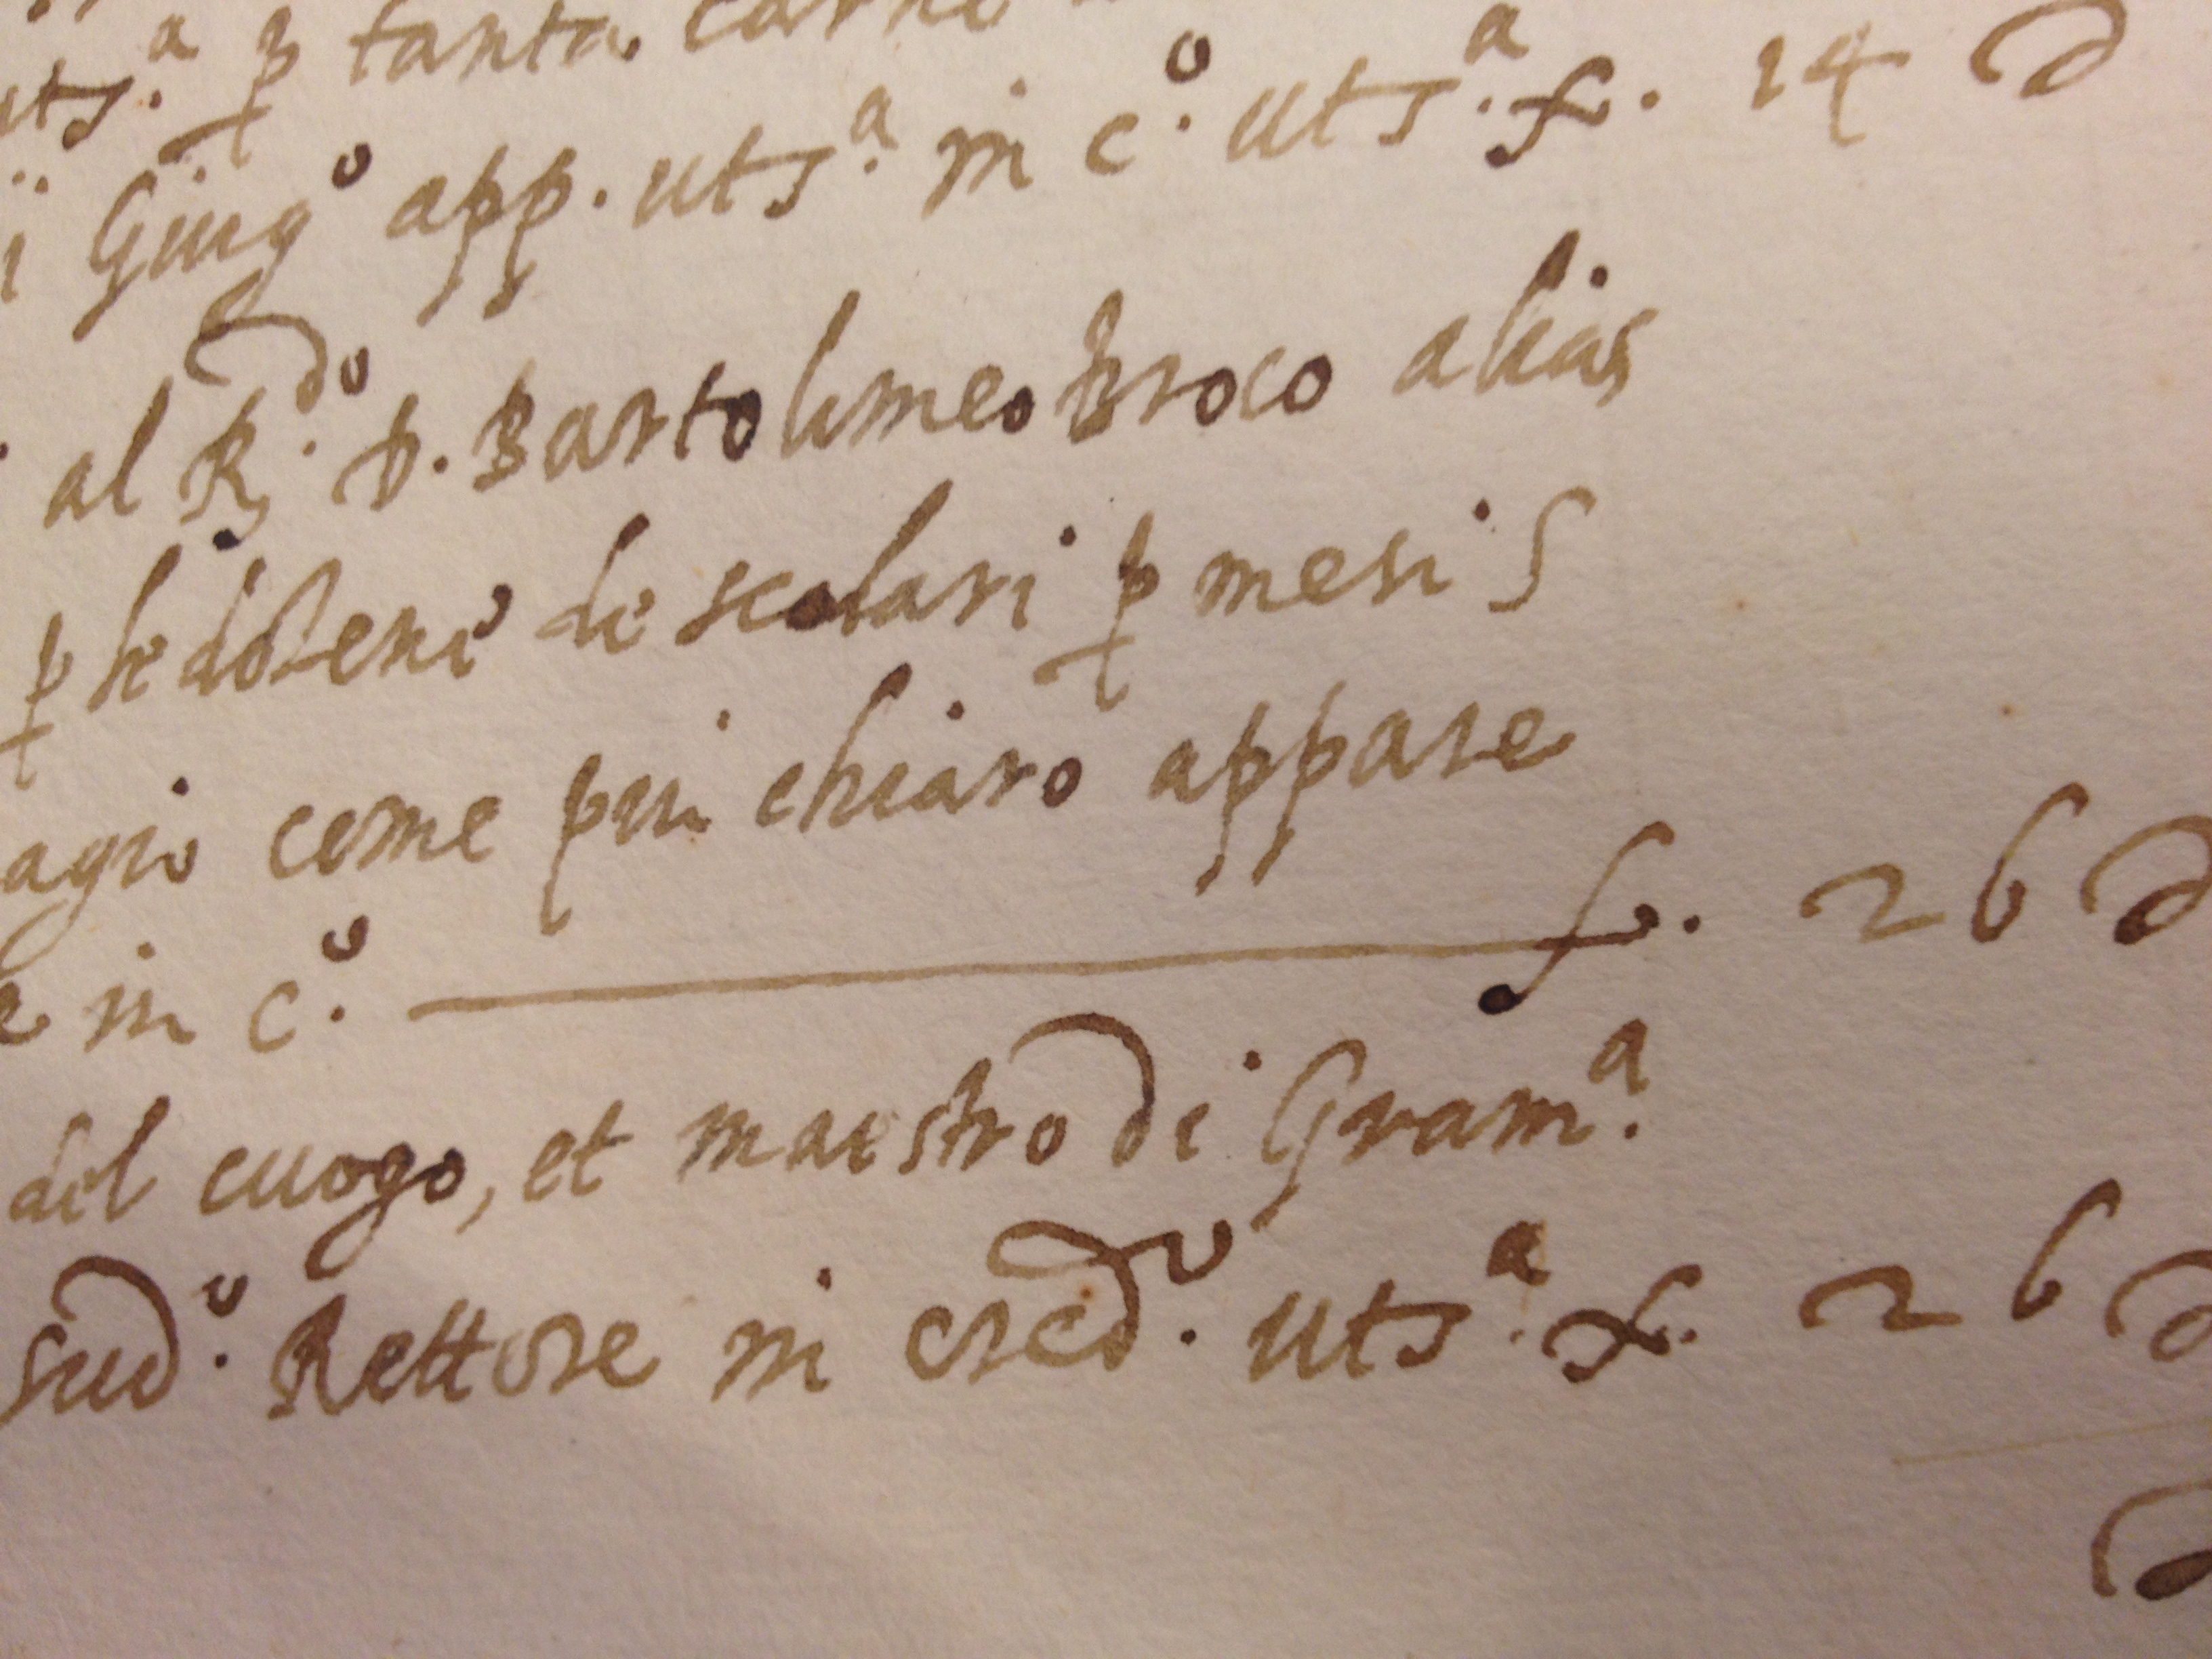 uts.ª p tanta carne
i Giugº app. utsª. in cº. utsª. f. 14 d
al R.dº D. Bartolimeo Broco alias
p le doZene de scolari p mesi 5
agio come piu chiaro appare
e in cº. f. 26 d
del cuogo, et maestro di Gramª.
sudº. Rettore in credº. utsª. f. 26 d